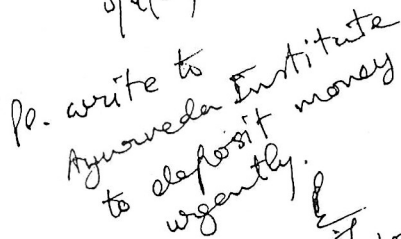 Pl. write to
Ayurveda Institute
to deposit money
urgently.